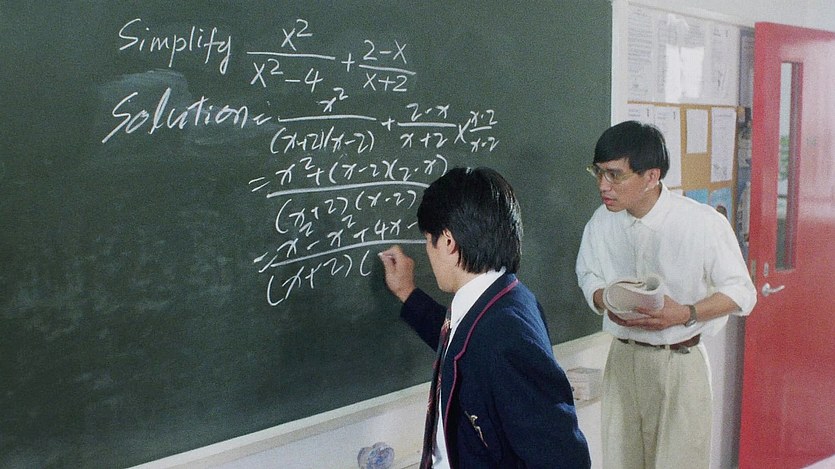 Simplify x²/(x²-4) + (2-x)/(x+2)
Solution: x²/((x+2)(x-2)) + (2-x)/(x+2) × (x-2)/(x-2)
= (x²+(x-2)(2-x))/((x+2)(x-2))
= (x²-x²+4x-)/((x+2)(